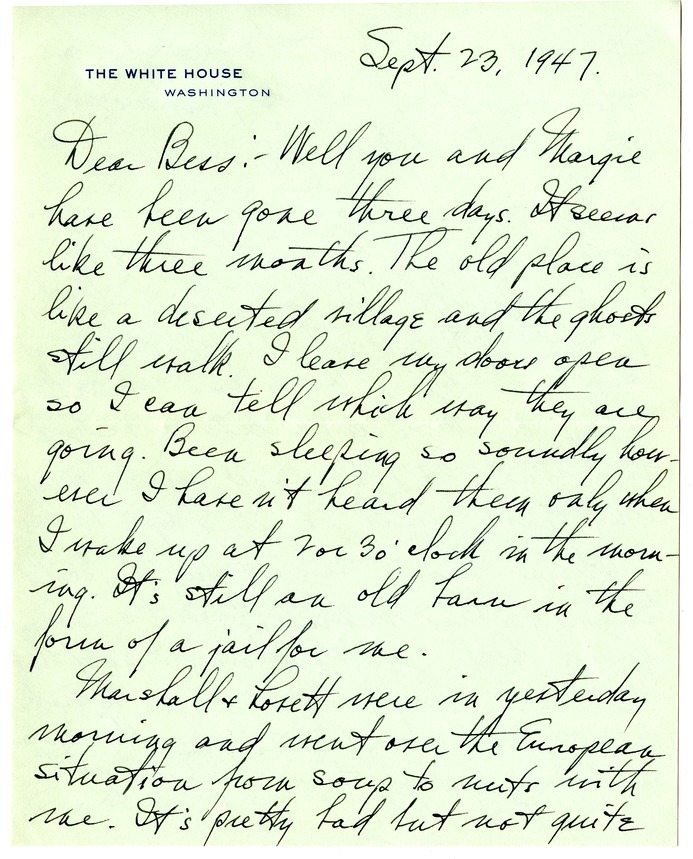 THE WHITE HOUSE
WASHINGTON
Sept. 23, 1947.
Dear Bess:- Well you and Margie
have been gone three days. It seems
like three months. The old place is
like a deserted village and the ghosts
still walk. I leave my doors open
so I can tell which way they are
going. Been sleeping so soundly how-
ever I haven't heard them only when
I wake up at 2 or 3 o'clock in the morn-
ing. It's still an old barn in the
form of a jail for me.
Marshall & Lovett were in yesterday
morning and went over the European
situation from soup to nuts with
me. It's pretty bad but not quite